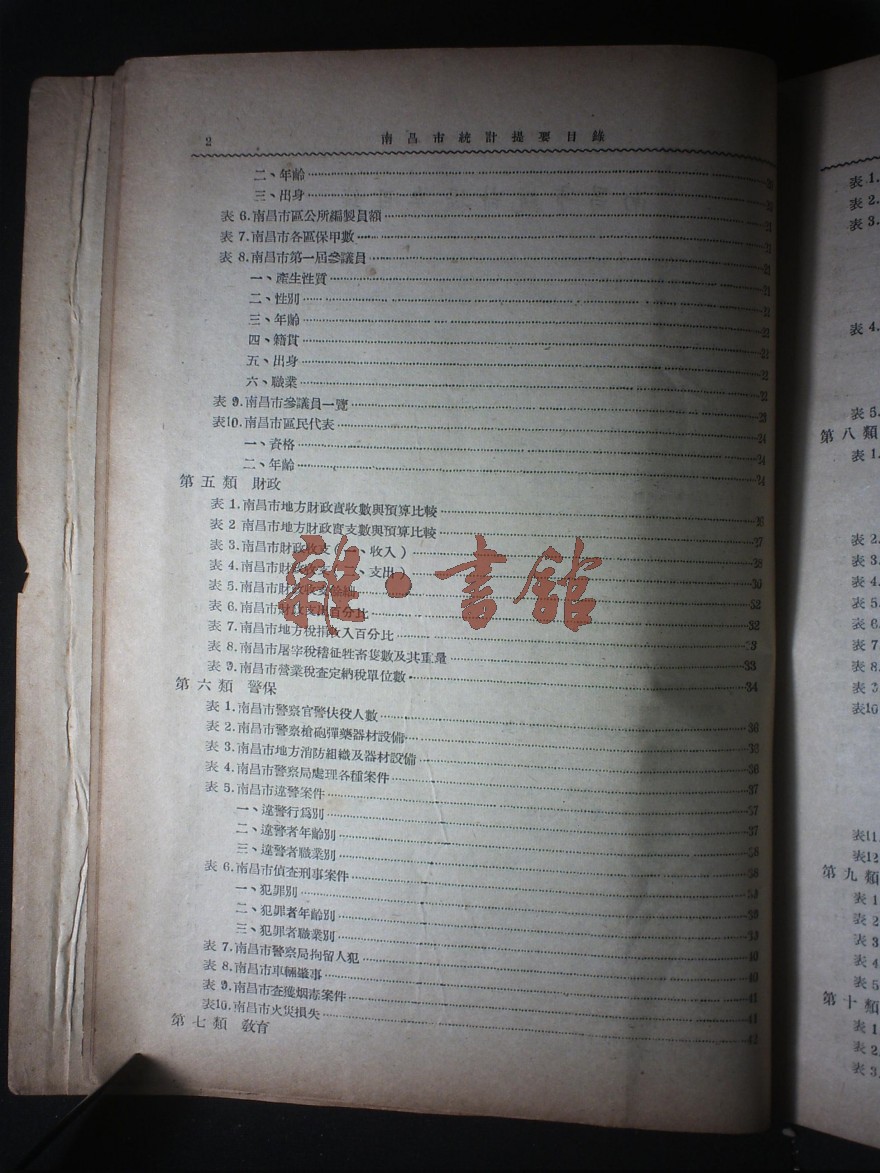 2 南昌市統計提要目錄
二、年齡
三、出身
表 6.南昌市區公所編製員額 21
表 7.南昌市各區保甲數 21
表 8.南昌市第一屆參議員 21
一、產生性質 21
二、性別
三、年齡 22
四、籍貫
五、出身
六、職業
表 9.南昌市參議員一覽 23
表10.南昌市區民代表 24
一、資格 24
二、年齡 24
第五類 財政
表 1.南昌市地方財政實收數與預算比較
表 2 南昌市地方財政實支數與預算比較 27
表 3.南昌市財政收支(一、收入) 28
表 4.南昌市財政收支(二、支出) 30
表 5.南昌市財政收支餘絀 32
表 6.南昌市財政支出百分比 32
表 7.南昌市地方稅捐收入百分比
表 8.南昌市屠宰稅稽征牲畜隻數及其重量 33
表 9.南昌市營業稅查定納稅單位數 34
第六類 警保
表 1.南昌市警察官警伕役人數 36
表 2.南昌市警察槍砲彈藥器材設備
表 3.南昌市地方消防組織及器材設備 36
表 4.南昌市警察局處理各種案件 37
表 5.南昌市違警案件 37
一、違警行爲別 37
二、違警者年齡別
三、違警者職業別 38
表 6.南昌市偵查刑事案件
一、犯罪別 39
二、犯罪者年齡別 39
三、犯罪者職業別
表 7.南昌市警察局拘留人犯 40
表 8.南昌市車輛肇事 40
表 9.南昌市查獲烟毒案件 41
表10.南昌市火災損失 41
第七類 教育 42
雜·書館
表 1.
表 2.
表 3.
表 4.
表 5.
第八類
表 1.
表 2.
表 3.
表 4.
表 5.
表 6.
表 7
表 8.
表 9
表10
表11.
表12
第九類
表 1
表 2
表 3
表 4
表 5
第十類
表 1
表 2.
表 3.